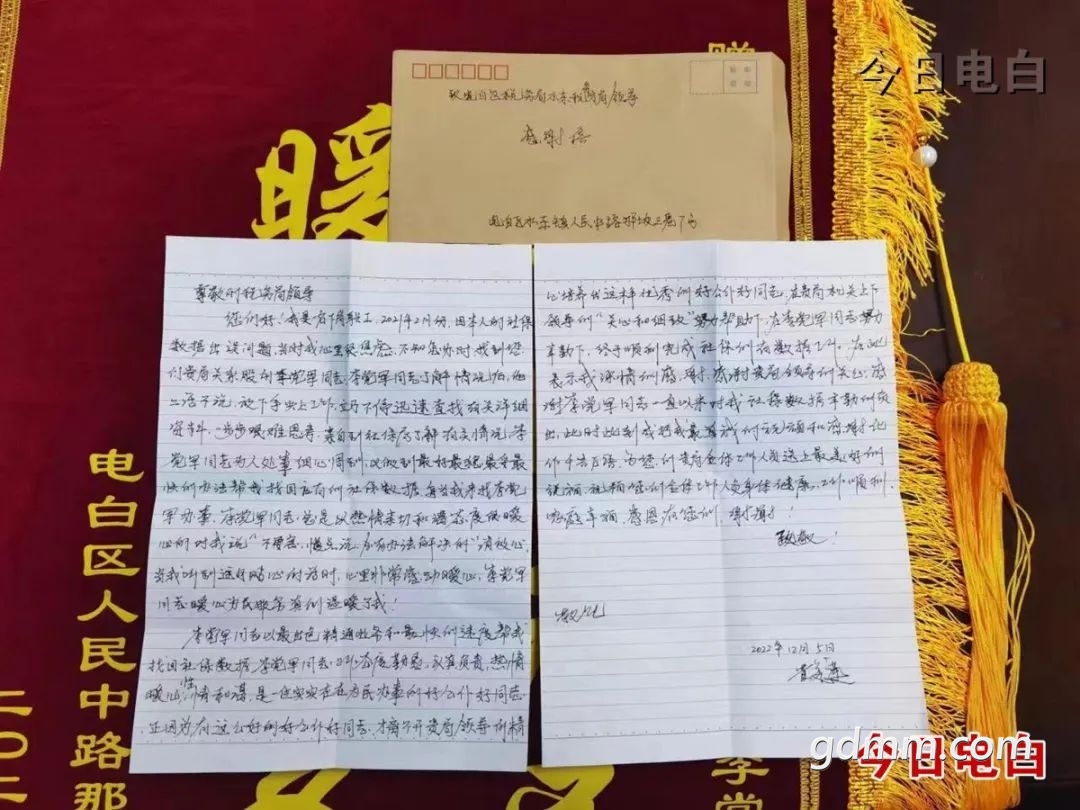 今日电白
赠
暖
致电白区税务局水东税务局领导
感谢信
电白区水东镇人民中路那坡三巷7号
尊敬的税务局领导
您们好!我是名下岗职工,2021年2月份,因本人的社保
数据出误问题,当时我心里
贵局关系股的李党军同志,李党军同志了解情况后,他
二话不说,放下手头上工作,立马不停迅速查找有关详细
资料,一步步艰难思考,亲自到社保局了解有关情况,李
党军同志为人处事细心周到,以做到最好最稳最妥最
快的办法帮我找回应有的社保数据,每当我来找李党
军办事,李党军同志总是以热情亲切和谐态度低暖
心的对我说"不要急,慢点说,会有办法解决的"请放心,
当我听到这样贴心的话时,心里非常感动暖心,李党军
同志暖心为民服务真的温暖了我!
李党军同志以最出色精通业务和最快的速度帮我
找回社保数据,李党军同志工作态度勤恳,认真负责,热情
暖心,性情和谐,是一位实实在在为民办事的好公仆好同志,
正因为有这么好的好公仆好同志,才离不开贵局领导的精
心培养出这样优秀的好公仆好同志,在贵局机关上下
领导的"关心和细致"努力帮助下,在李党军同志努力
辛勤下,终于顺利完成社保的有数据工作,在此
表示我深情的感谢,感谢贵局领导的关心,感
谢李党军同志一直以来对我社保数据辛勤的付
出,此时此刻我把我最真诚的祝愿和感谢化
作千言万语,为您们贵局全体工作人员送上最美好的
祝福,祝福您们全体工作人员身体健康,工作顺利,
家庭幸福,感恩有您们,谢谢!
致敬!
敬礼
2022年12月5日
电白区人民中路那
二〇二
李党
gdmm.com
今日电白